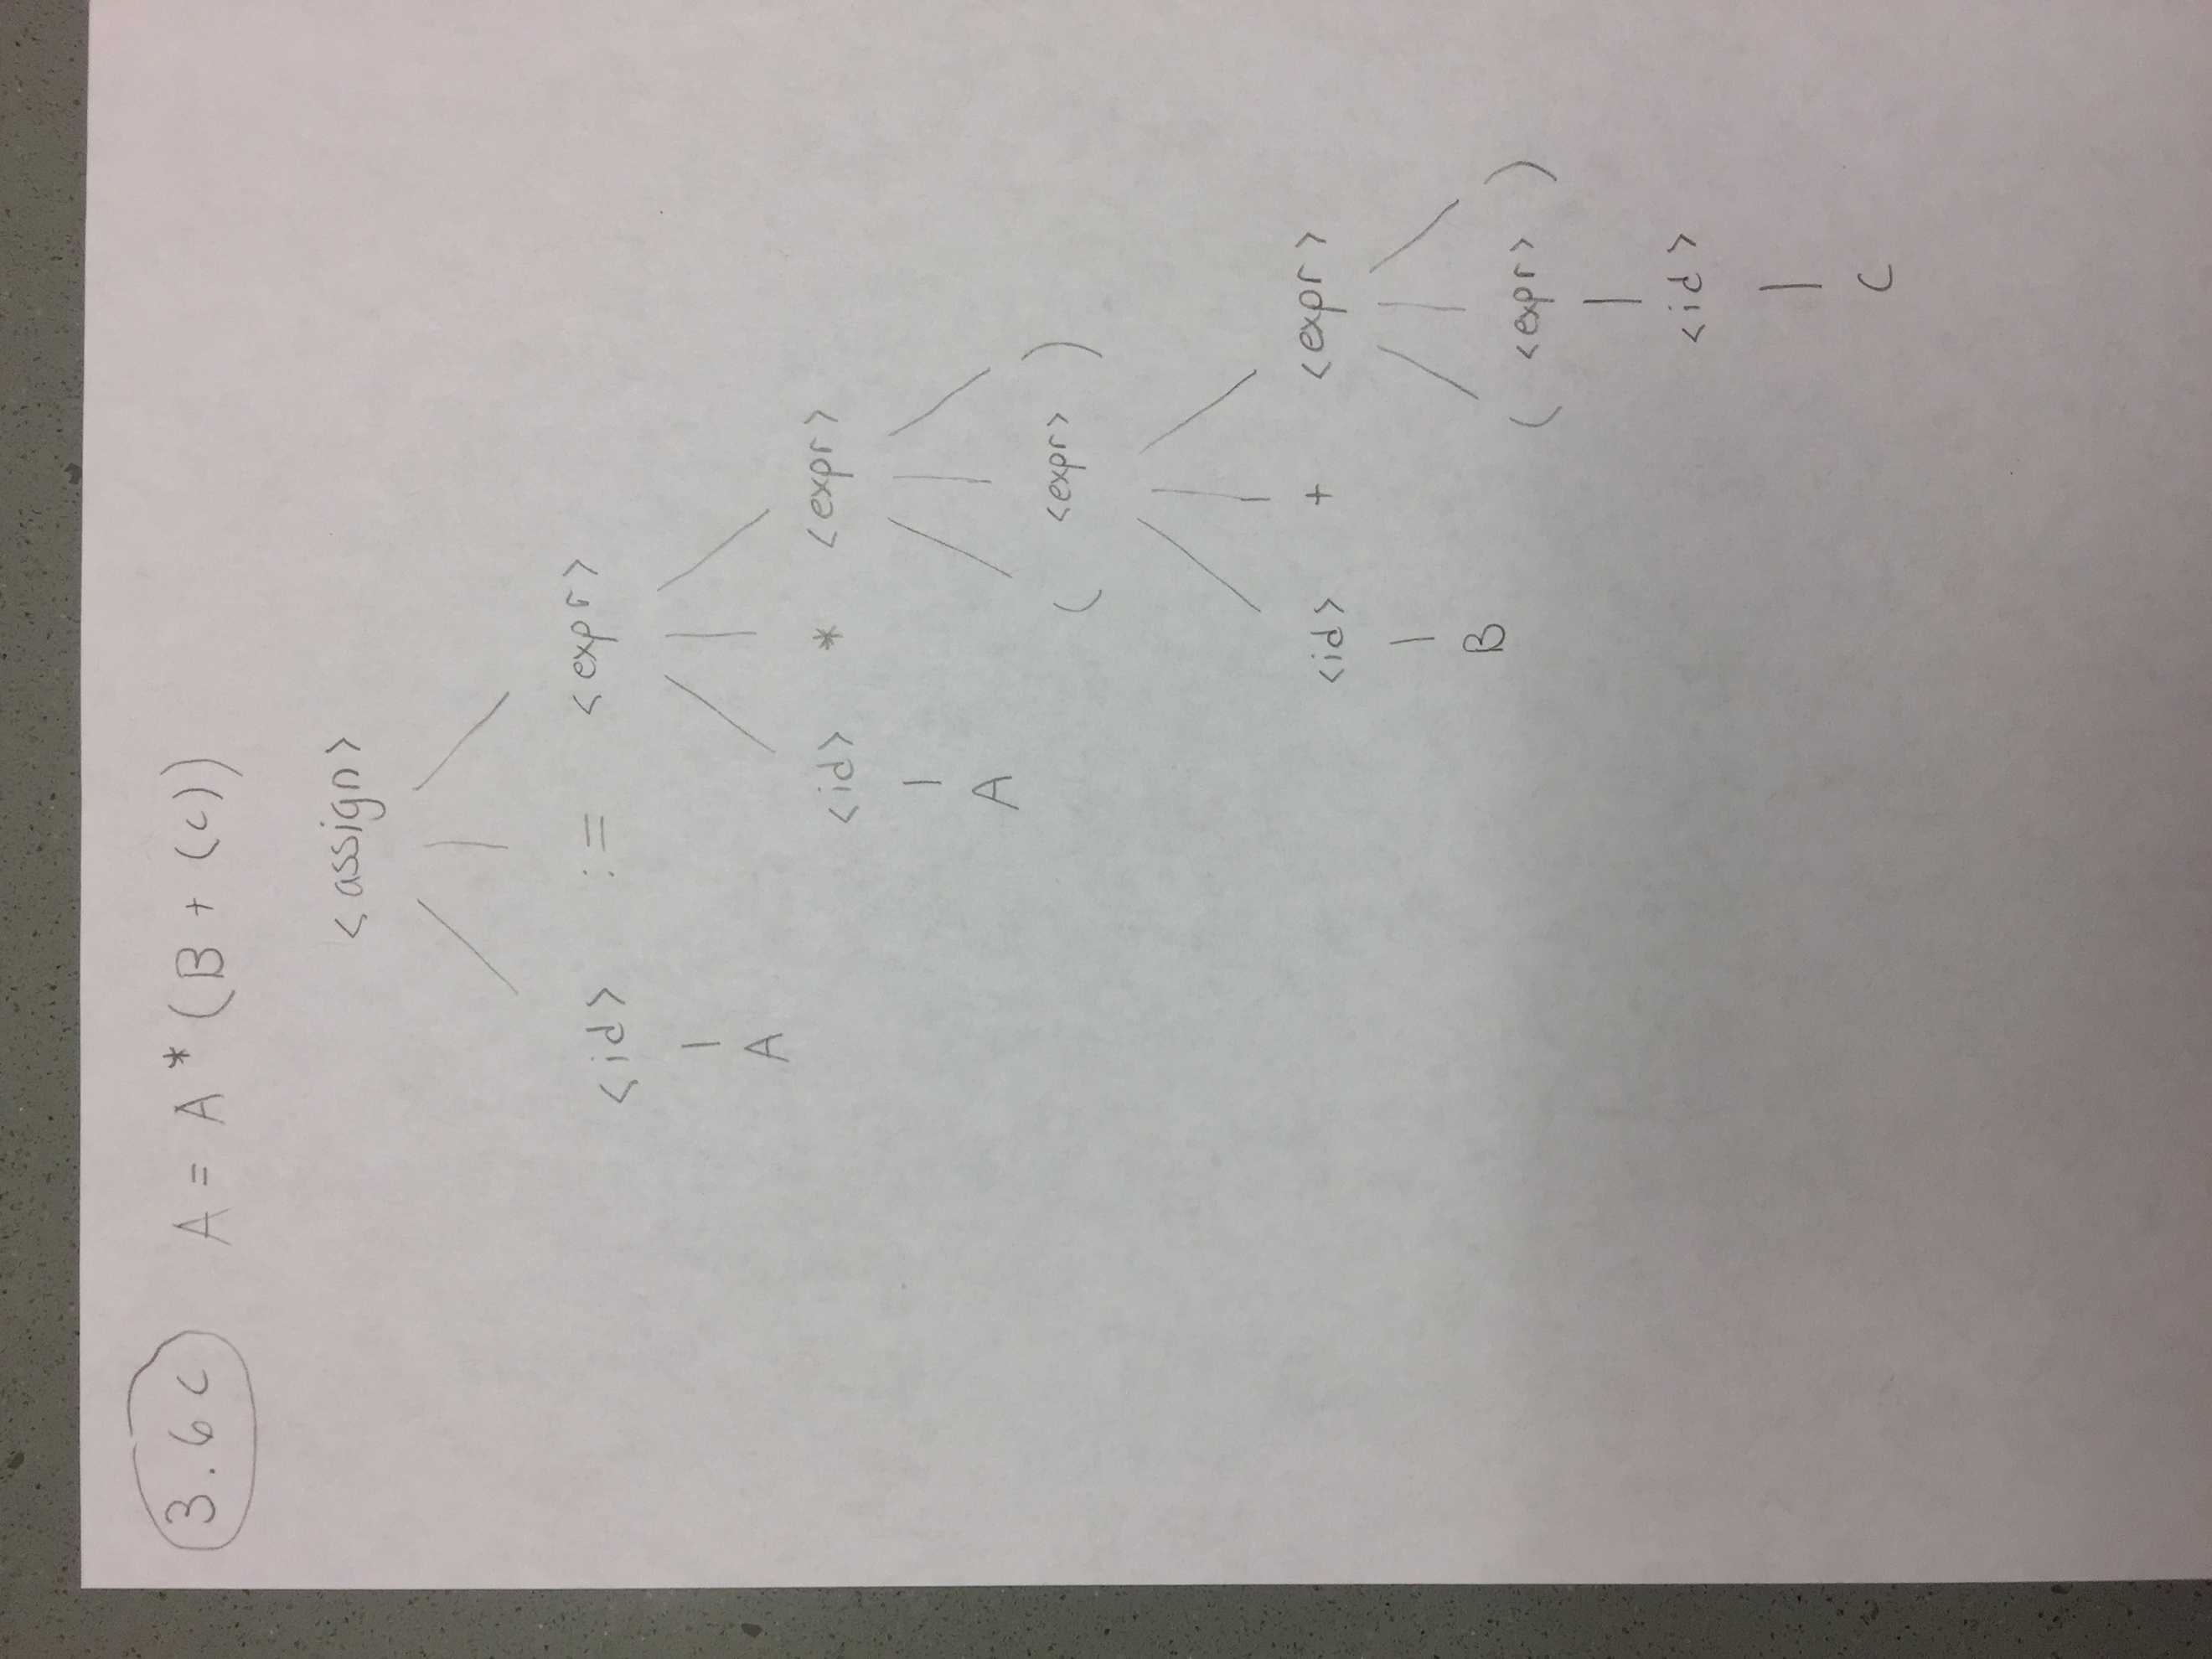 3.6c A = A * (B + (c))
<assign>
<id> := <expr>
A <id> * <expr>
A ( <expr> )
<id> + <expr>
B ( <expr> )
<id>
C